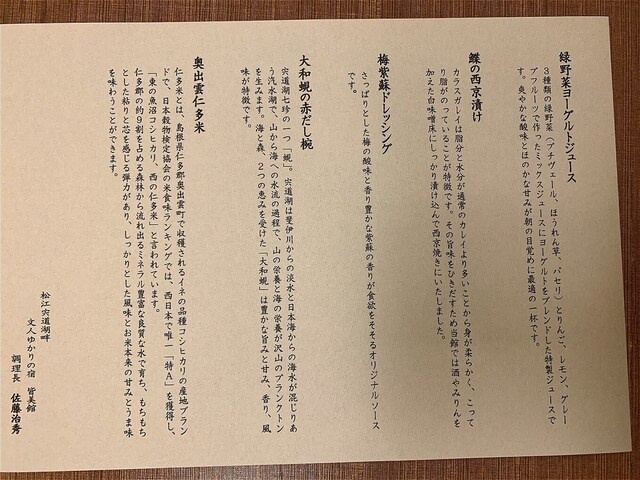 緑野菜ヨーグルトジュース
3種類の緑野菜（プチヴェール、ほうれん草、パセリ）とりんご、レモン、グレー
プフルーツで作ったミックスジュースにヨーグルトをブレンドした特製ジュースで
す。爽やかな酸味とほのかな甘みが朝の目覚めに最適の一杯です。
鰈の西京漬け
カラスガレイは脂分と水分が通常のカレイより多いことから身が柔らかく、こって
り脂がのっていることが特徴です。その旨味をひきだすため当館では酒やみりんを
加えた白味噌床にしっかり漬け込んで西京焼きにいたしました。
梅紫蘇ドレッシング
さっぱりとした梅の酸味と香り豊かな紫蘇の香りが食欲をそそるオリジナルソース
です。
大和蜆の赤だし椀
宍道湖七珍の一つ「蜆」。宍道湖は斐伊川からの淡水と日本海からの海水が混じりあ
う汽水湖で、山から海への水流の過程で、山の栄養と海の栄養が沢山のプランクトン
を生みます。海と森、2つの恵みを受けた「大和蜆」は豊かな旨みと甘み、香り、風
味が特徴です。
奥出雲仁多米
仁多米とは、島根県仁多郡奥出雲町で収穫されるイネの品種コシヒカリの産地ブラン
ドで、日本穀物検定協会の米食味ランキングでは、西日本で唯一「特A」を獲得し、
「東の魚沼コシヒカリ、西の仁多米」と言われています。
仁多郡の約9割を占める森林から流れ出るミネラル豊富な良質な水で育ち、もちもち
とした粘りと芯を感じる弾力があり、しっかりとした風味とお米本来の甘みとうま味
を味わうことができます。
松江宍道湖畔
文人ゆかりの宿 皆美館
調理長 佐藤治秀